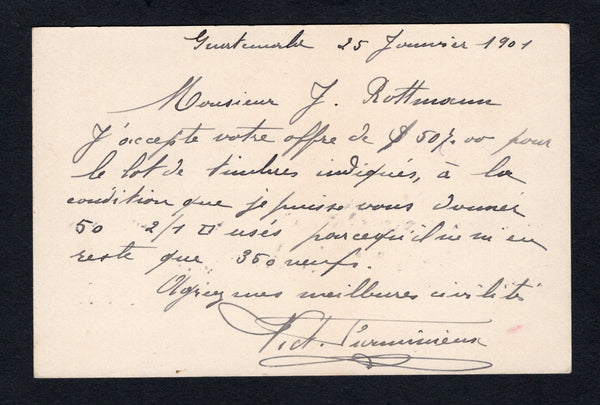 Guatemala 25 Janvier 1901
Monsieur J. Rottmann
J'accepte votre offre de $ 507.00 pour
le lot de timbres indiqués, à la
condition que je puisse vous donner
50 2/1 usés parcequ'il ne m'en
reste que 350 neufs.
Agréez mes meilleures civilités
Vict.